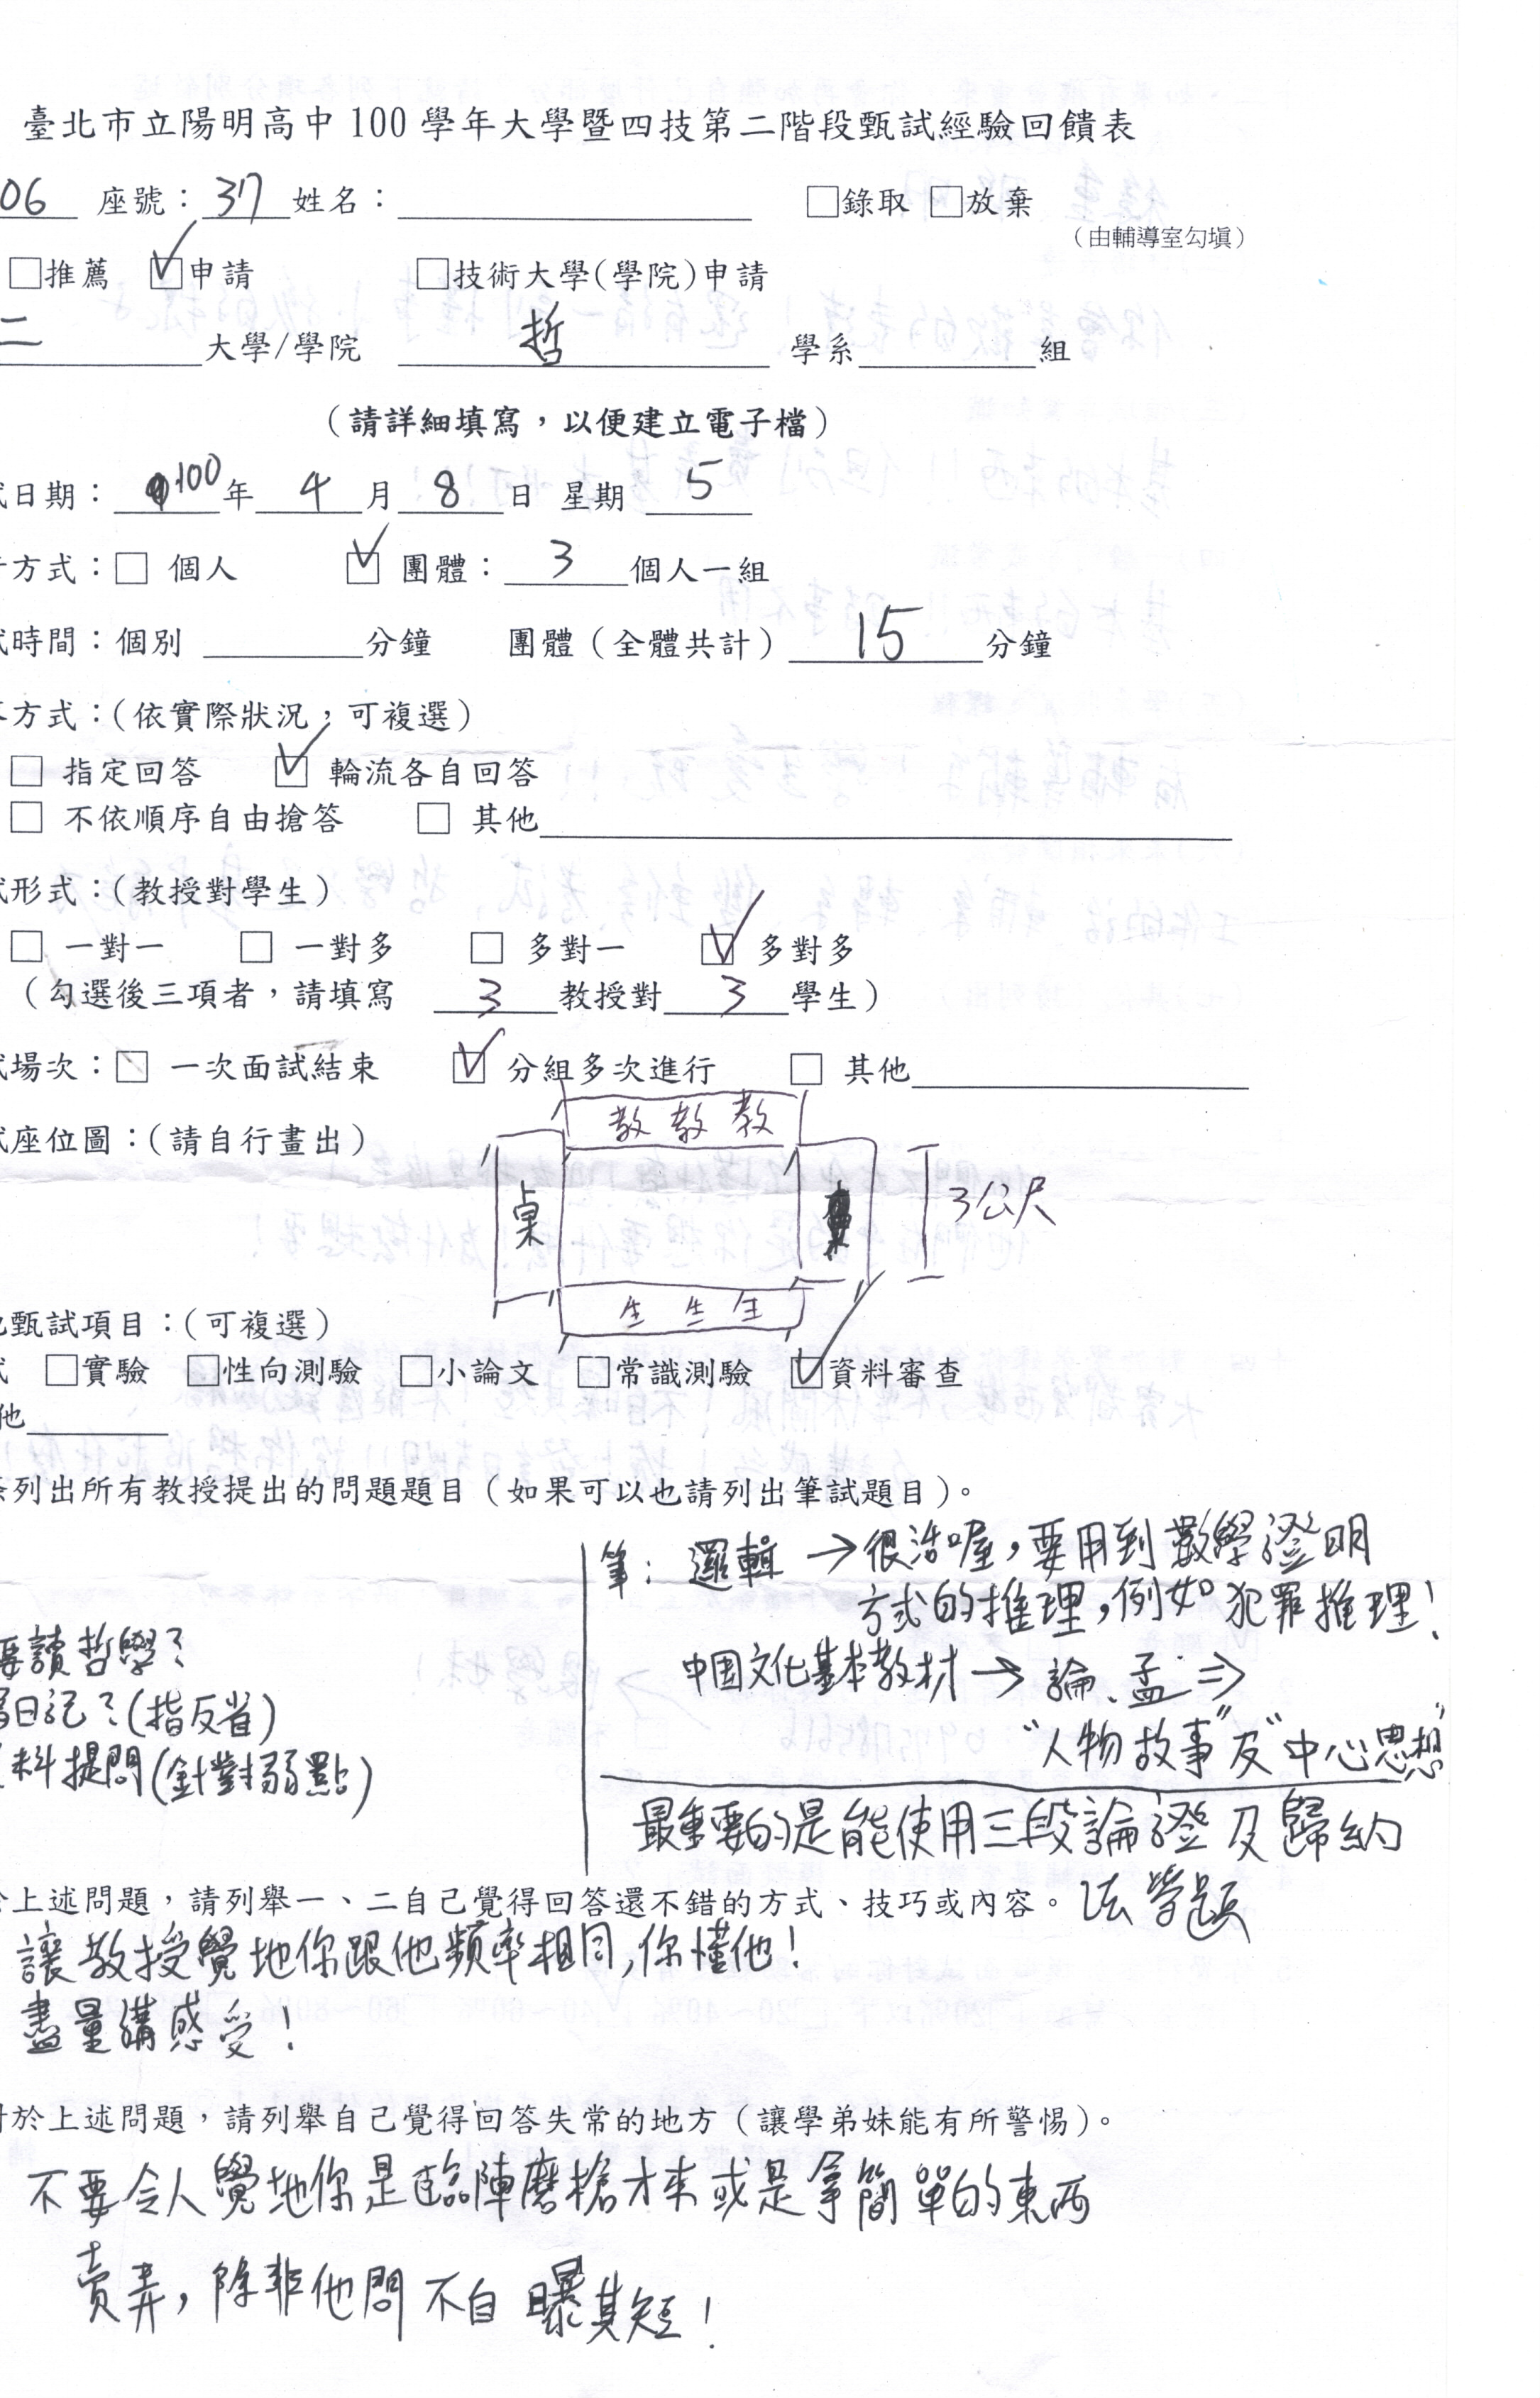 臺北市立陽明高中 100 學年大學暨四技第二階段甄試經驗回饋表
06 座號：37 姓名： □錄取 □放棄
（由輔導室勾填）
□推薦 ☑申請 □技術大學(學院)申請
大學/學院 哲 學系 組
（請詳細填寫，以便建立電子檔）
日期：100年 4 月 8 日 星期 5
方式：□ 個人 ☑ 團體： 3 個人一組
時間：個別 分鐘 團體（全體共計） 15 分鐘
方式：(依實際狀況，可複選）
□ 指定回答 ☑ 輪流各自回答
□ 不依順序自由搶答 □ 其他
形式：(教授對學生）
□ 一對一 □ 一對多 □ 多對一 ☑ 多對多
（勾選後三項者，請填寫 3 教授對 3 學生）
場次：□ 一次面試結束 ☑ 分組多次進行 □ 其他
教 教 教
座位圖：(請自行畫出）
桌
3公尺
生 生 生
甄試項目：(可複選）
□實驗 □性向測驗 □小論文 □常識測驗 ☑資料審查
他
列出所有教授提出的問題題目（如果可以也請列出筆試題目）。
筆：邏輯 → 很活喔，要用到數學證明
方式的推理，例如犯罪推理！
要讀哲學？
日記？(指反省)
料提問(針對弱點)
中国文化基本教材 → 論、孟 ⇒
"人物故事"及"中心思想"
最重要的是能使用三段論證及歸納
法答題
上述問題，請列舉一、二自己覺得回答還不錯的方式、技巧或內容。
讓教授覺地你跟他頻率相同，你懂他！
盡量講感受！
於上述問題，請列舉自己覺得回答失常的地方（讓學弟妹能有所警惕）。
不要令人覺地你是臨陣磨槍才來或是拿簡單的東西
賣弄，除非他問不自曝其短！